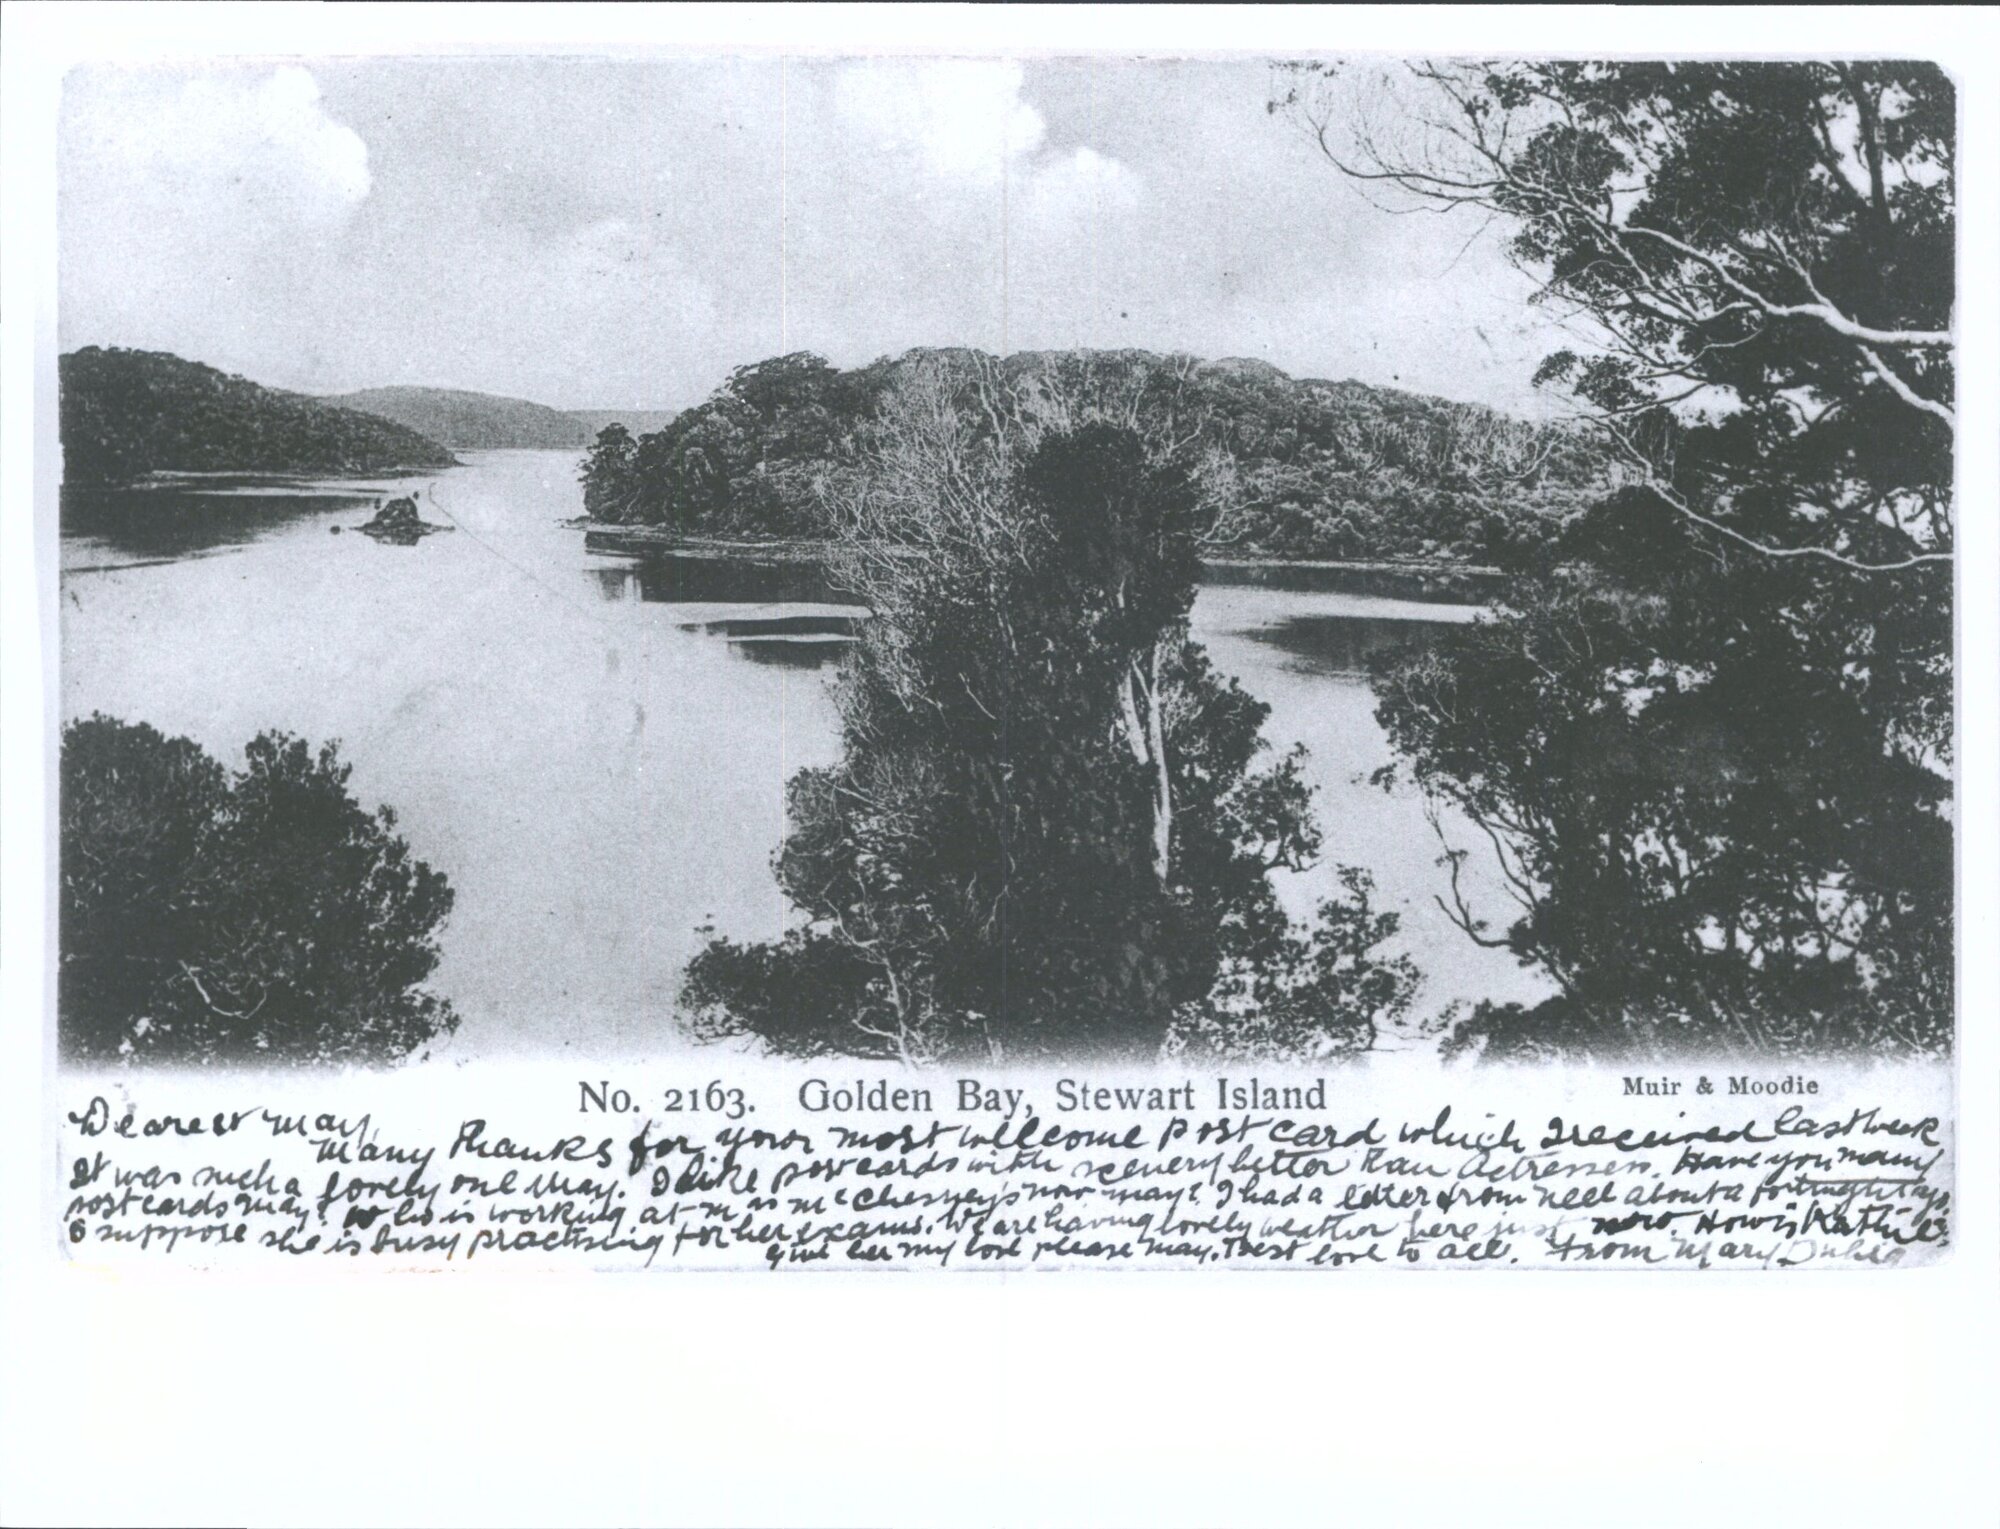 No. 2163. Golden Bay, Stewart Island
Muir & Moodie
Dearest May,
Many thanks for your most wellcome post card which I received last week
It was such a lovely one May. I like postcards with scenery better than Actresses. Have you many
postcards May? Who is working at Mrs McChesney's now May? I had a letter from Nell about a fortnight ago.
I suppose she is busy practising for her exams. We are having lovely weather here just now. How is Kathie?
Give her my love please May. Best love to all. From Mary